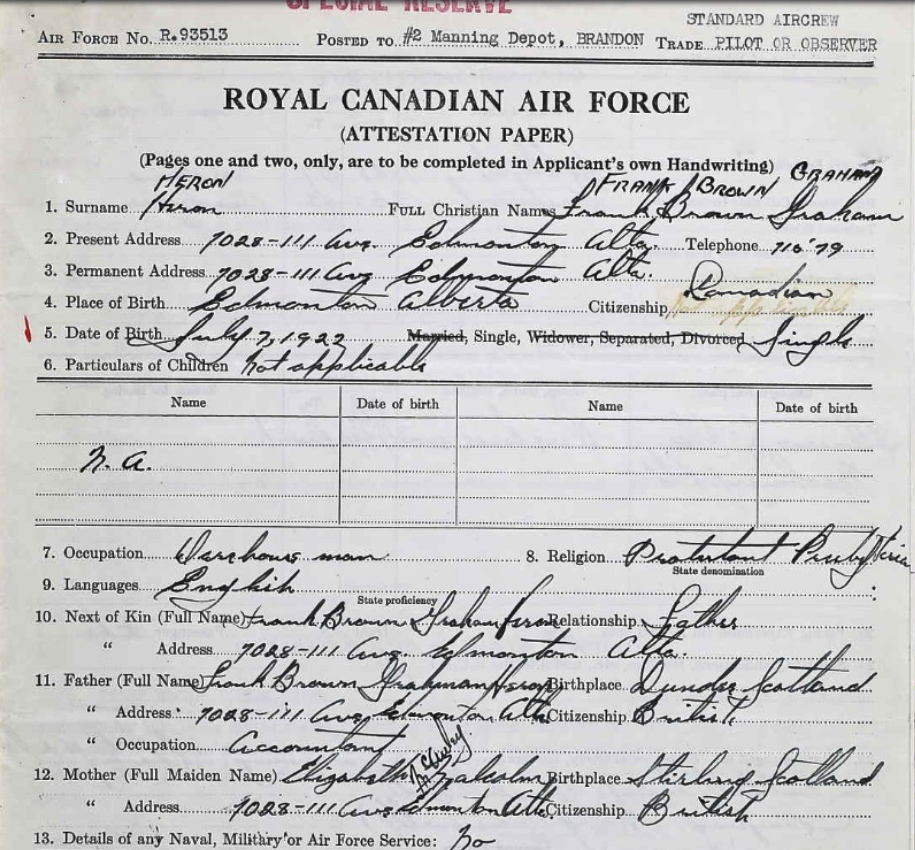 SPECIAL RESERVE
STANDARD AIRCREW
AIR FORCE No. R.93513 POSTED TO #2 Manning Depot, BRANDON TRADE PILOT OR OBSERVER
ROYAL CANADIAN AIR FORCE
(ATTESTATION PAPER)
(Pages one and two, only, are to be completed in Applicant's own Handwriting)
HERON FRANK BROWN GRAHAM
1. Surname Heron FULL Christian Names Frank Brown Graham
2. Present Address 7028-111 Ave. Edmonton Alta. Telephone 716'79
3. Permanent Address 7028-111 Ave Edmonton Alta.
4. Place of Birth Edmonton Alberta Citizenship Canadian
5. Date of Birth July 7, 1922 Married, Single, Widower, Separated, Divorced Single
6. Particulars of Children not applicable
Name Date of birth Name Date of birth
N.A.
7. Occupation Warehouse man 8. Religion Protestant Presbyterian
State denomination
9. Languages English
State proficiency
10. Next of Kin (Full Name) Frank Brown Graham Heron Relationship Father
" Address 7028-111 Ave. Edmonton Alta.
11. Father (Full Name) Frank Brown Graham Heron Birthplace Dundee Scotland
" Address 7028-111 Ave Edmonton Alta Citizenship British
" Occupation Accountant
12. Mother (Full Maiden Name) Elizabeth Malcolm Birthplace Stirling Scotland
" Address 7028-111 Ave Edmonton Alta. Citizenship British
13. Details of any Naval, Military or Air Force Service: No